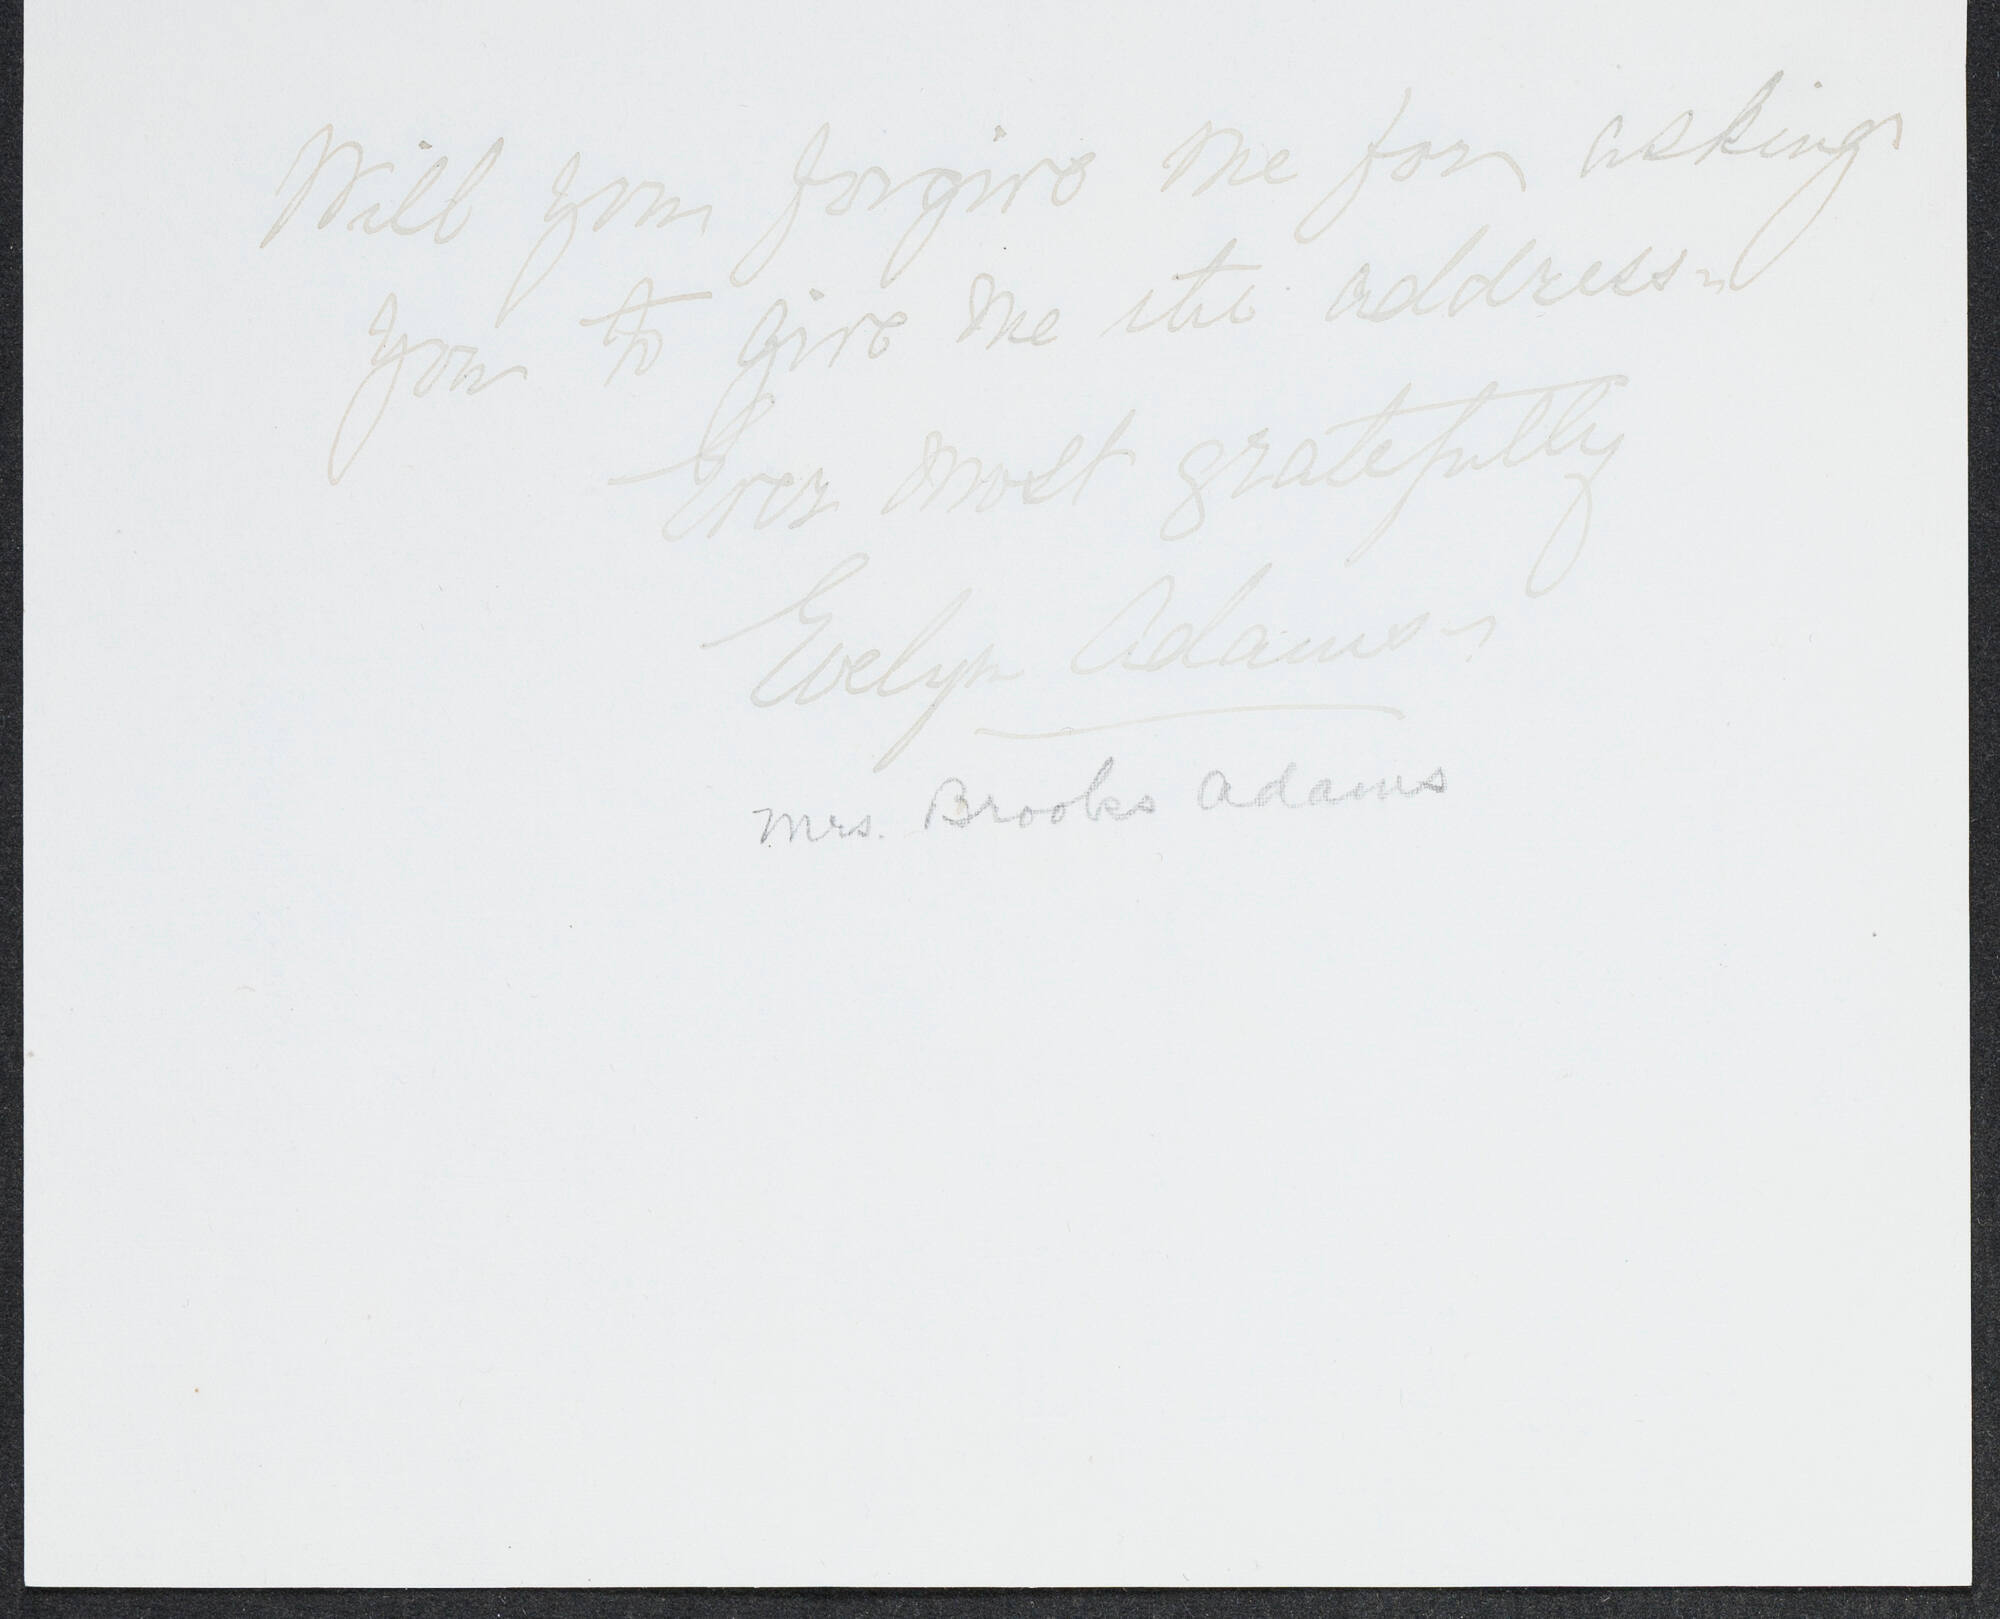 Will you forgive me for asking
you to give me the address -
Ever most gratefully
Evelyn Adams -
Mrs. Brooks Adams